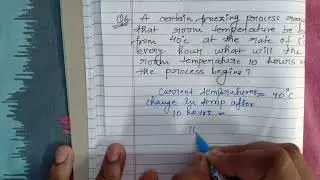 Q6 A certain freezing process
that room temperature be
from 40°C at the rate of 5
every hour what will the
room temperature 10 hours
the process begins?
Current temperatures = 40°C
Change in temp after
10 hours =